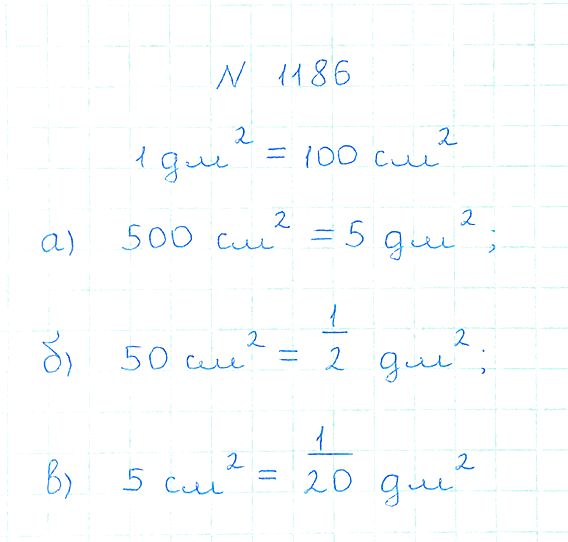 N 1186
1 дм² = 100 см²
а) 500 см² = 5 дм²;
б) 50 см² = 1/2 дм²;
в) 5 см² = 1/20 дм²